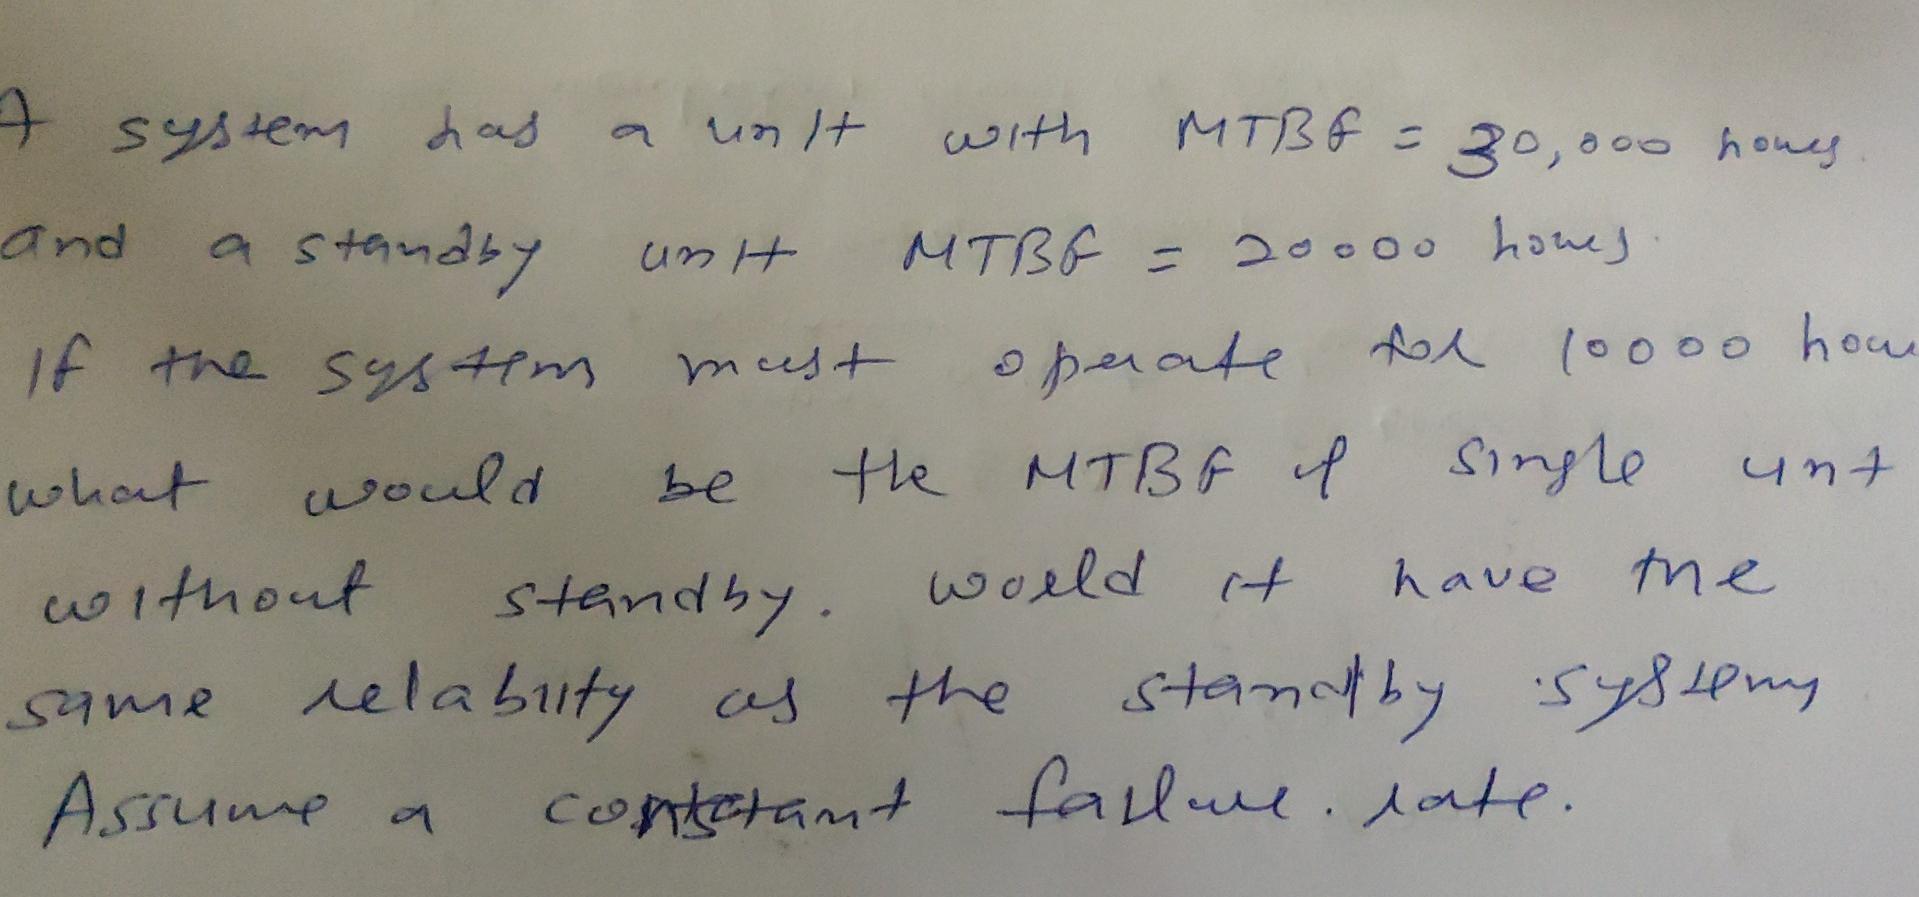 A system has a unit with MTBF = 30,000 hours.
and a standby unit MTBF = 20000 hours.
If the system must operate for 10000 hou
what would be the MTBF of single unt
without standby. would it have the
same relabity as the standby system
Assume a constant failure. rate.